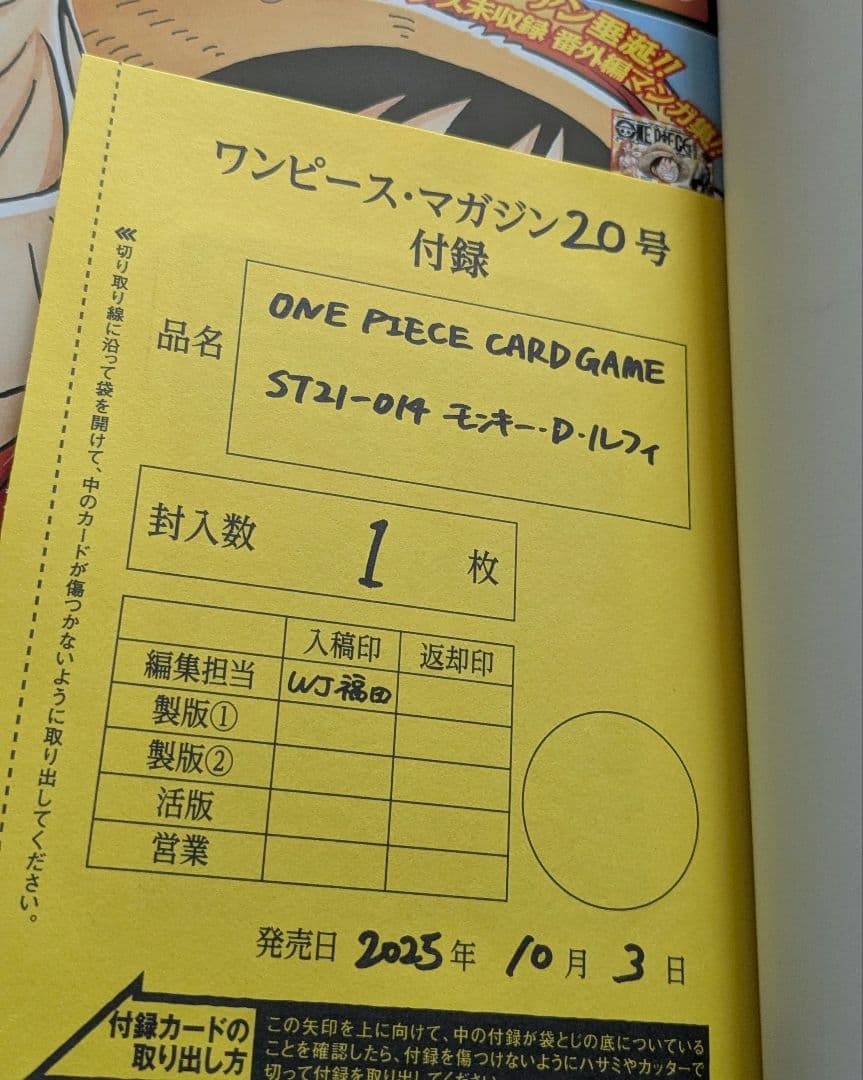 アン垂涎!!
ス未収録 番外編マンガ集!!
ONE PIECE
ワンピース・マガジン20号
付録
<<<切り取り線に沿って袋を開けて、中のカードが傷つかないように取り出してください。
品名
ONE PIECE CARD GAME
ST21-014 モンキー・D・ルフィ
封入数 1 枚
入稿印 返却印
編集担当 WJ福田
製版①
製版②
活版
営業
発売日 2025年 10月 3日
付録カードの
取り出し方
この矢印を上に向けて、中の付録が袋とじの底についている
ことを確認したら、付録を傷つけないようにハサミやカッターで
切って付録を取り出してください。